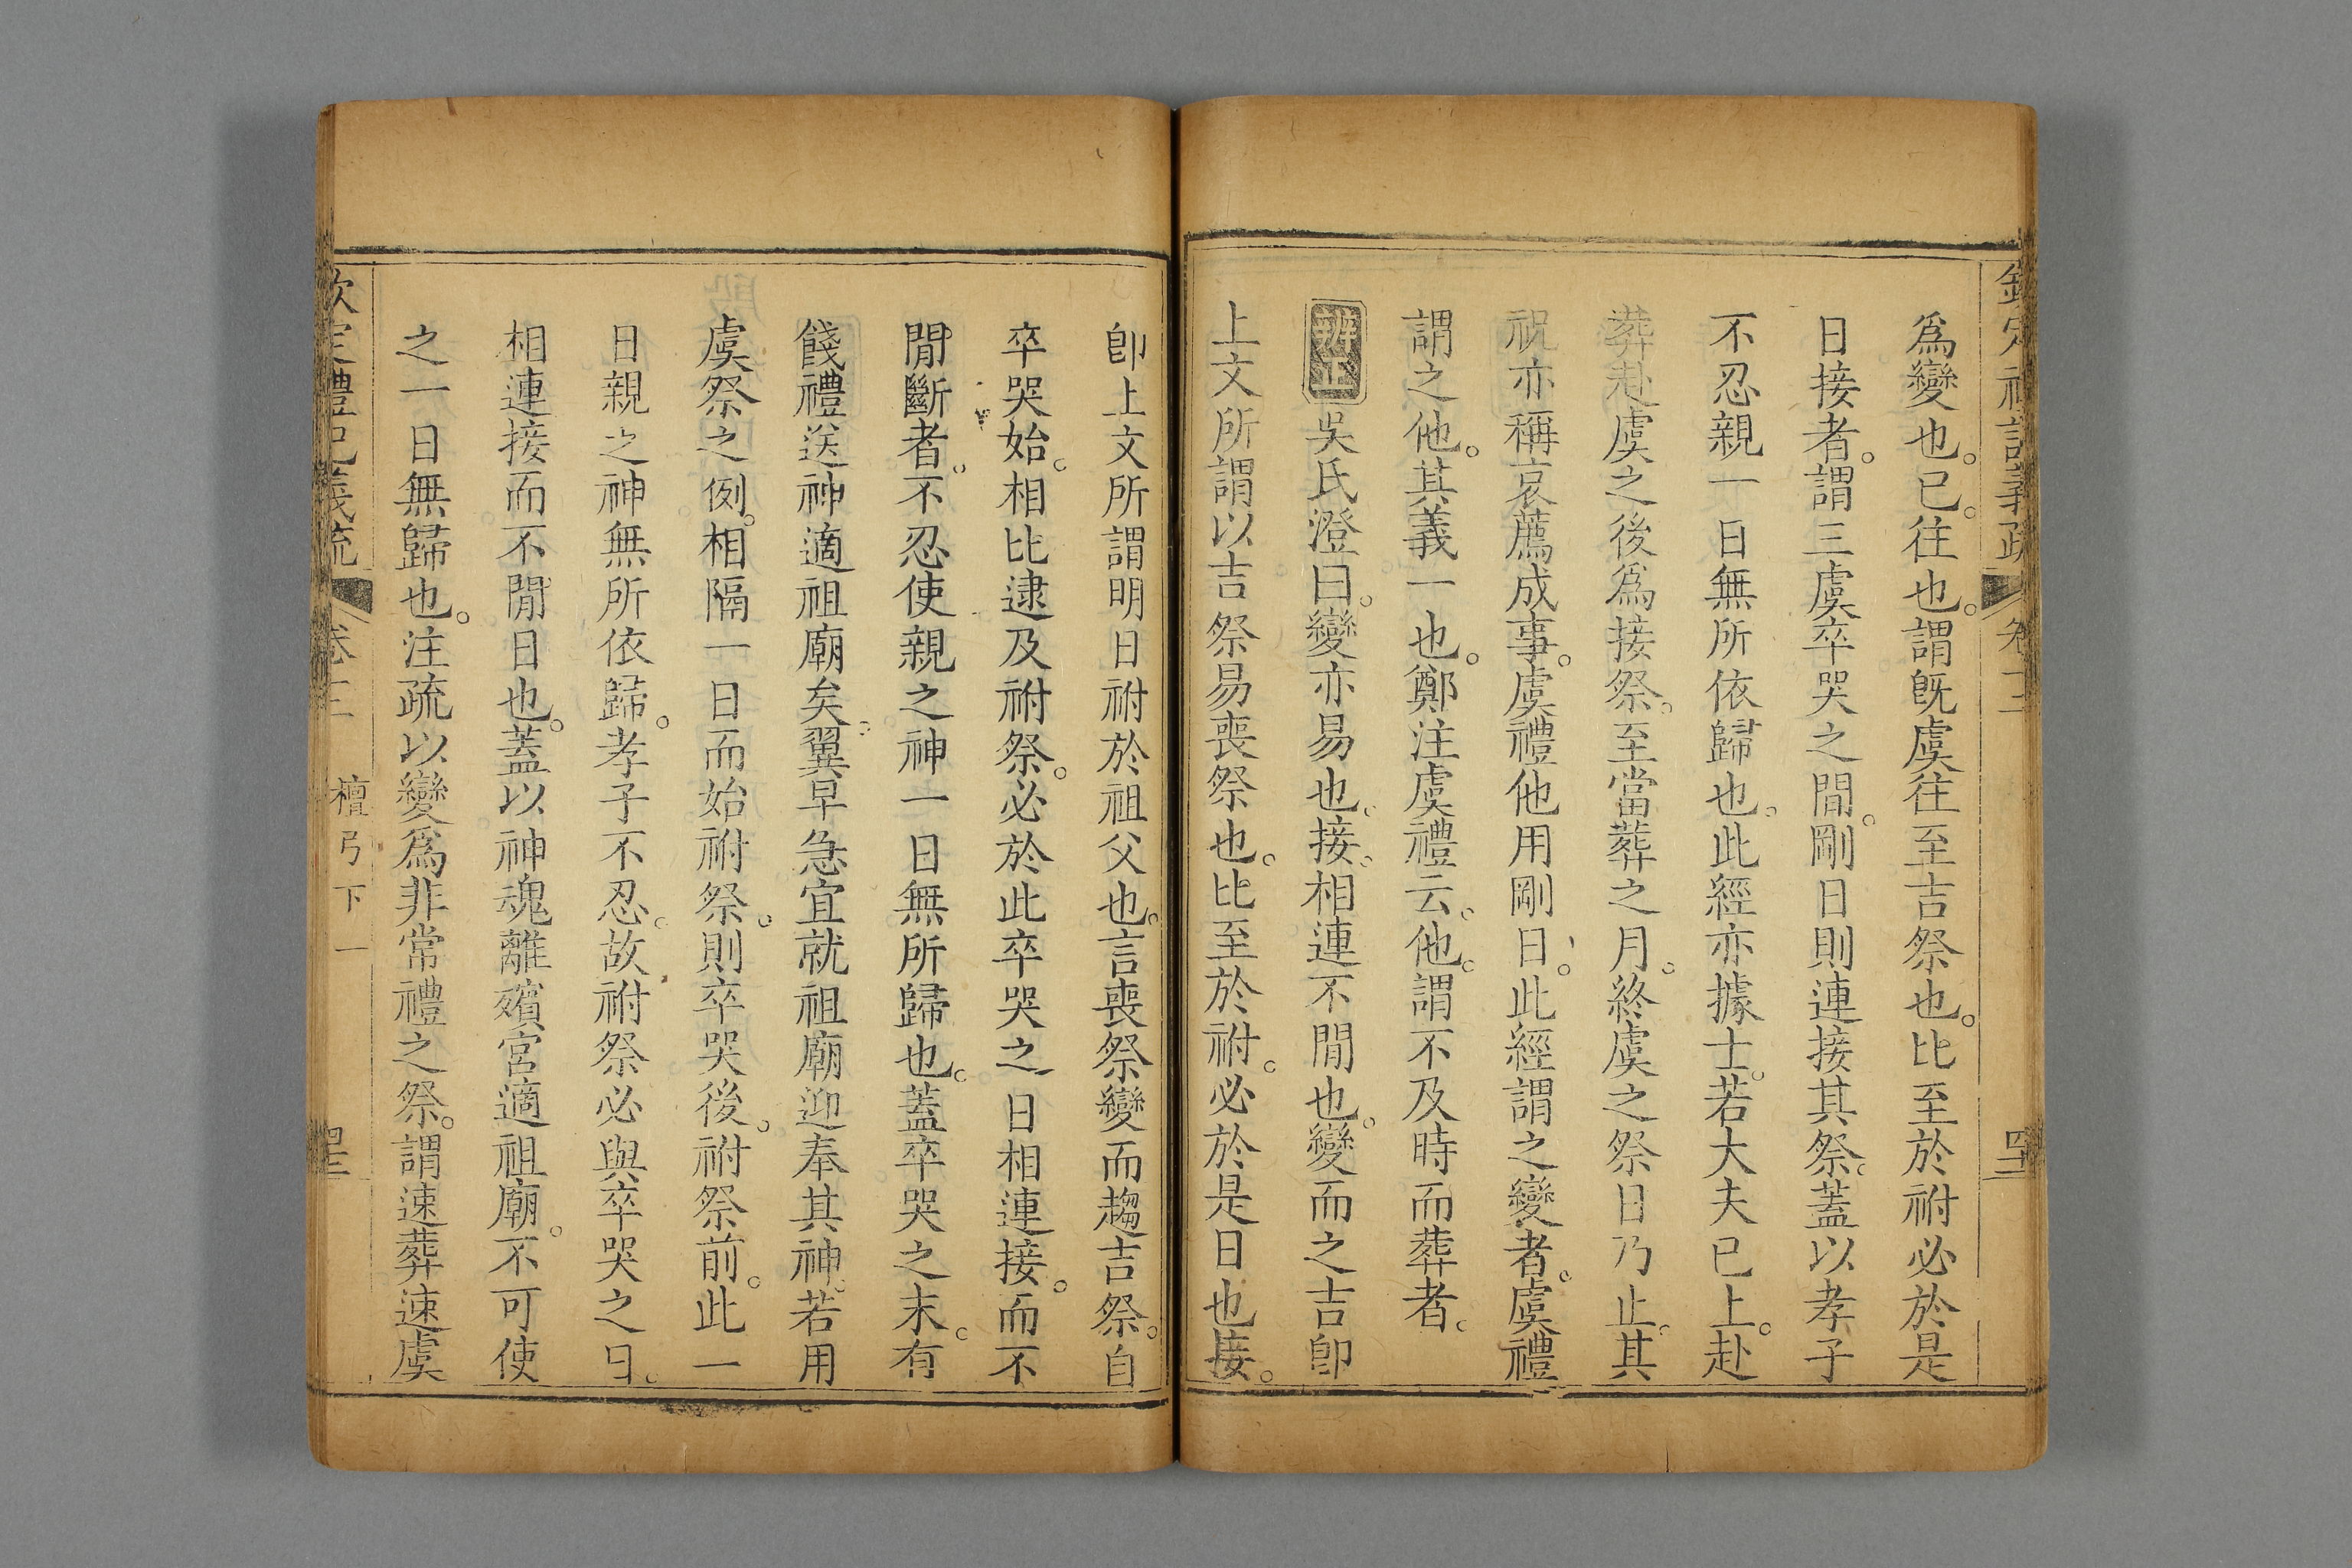 爲變也。已。往也。謂旣虞往至吉祭也。比至於祔必於是
日接者。謂三虞卒哭之閒。剛日則連接其祭。蓋以孝子
不忍親一日無所依歸也。此經亦據士。若大夫已上。赴
葬赴虞之後爲接祭。至當葬之月。終虞之祭日乃止。其
祝亦稱哀薦成事。虞禮他用剛日。此經謂之變者。虞禮
謂之他。其義一也。鄭注虞禮云。他。謂不及時而葬者。
辨正 吳氏澄曰。變亦易也。接。相連不閒也。變而之吉卽
上文所謂以吉祭易喪祭也。比至於祔。必於是日也接。
卽上文所謂明日祔於祖父也。言喪祭變而趨吉祭。自
卒哭始。相比逮及祔祭。必於此卒哭之日相連接。而不
閒斷者。不忍使親之神一日無所歸也。蓋卒哭之末。有
餞禮送神適祖廟矣。翼早急宜就祖廟迎奉其神。若用
虞祭之例。相隔一日而始祔祭。則卒哭後。祔祭前。此一
日親之神無所依歸。孝子不忍。故祔祭必與卒哭之日。
相連接而不閒日也。蓋以神魂離殯宮適祖廟。不可使
之一日無歸也。注疏以變爲非常禮之祭。謂速葬速虞
欽定禮記義疏 卷十二 檀弓下一